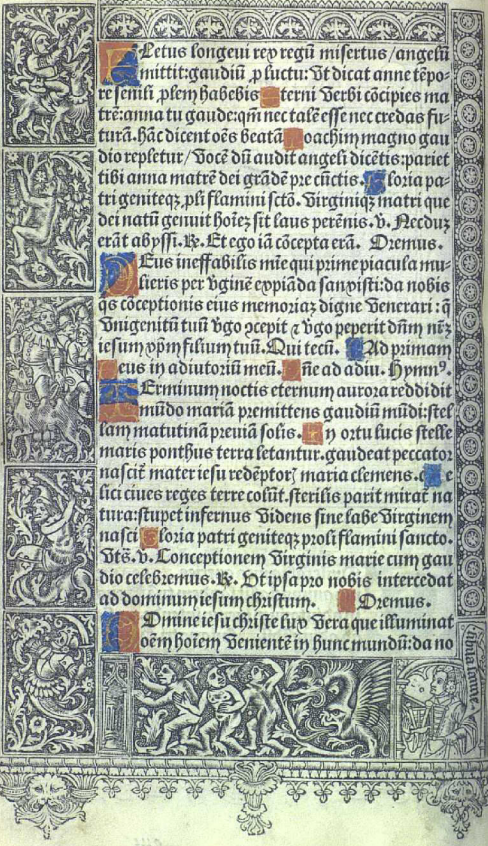 Fletus longeui rex regū misertus / angelū
mittit: gaudiū p luctu: Vt dicat anne tēpo-
re senili plem habebis Eterni Verbi cōcipies ma
tre: anna tu gaude: qm nec talē esse nec credas fu-
turā. hāc dicent oēs beatā Joachim magno gau
dio repletur / Vocē dū audit angeli dicētis: pariet
tibi anna matrē dei grādē pre cūctis. Gloria pa-
tri geniteqz pli flamini scto. Virginiqz matri que
dei natū genuit hoiez sit laus perēnis. v. Necduz
erāt abyssi. R. Et ego iā cōcepta erā. Oremus.
Deus ineffabilis mīe qui prime piacula mu-
lieris per vginē expiāda sanxisti: da nobis
qs cōceptionis eius memoriaz digne Venerari: q
Vnigenitū tuū vgo ɔcepit ⁊ vgo peperit dn̄m nr̄z
iesum xpm filium tuū. Qui tecū. Ad primam
Deus in adiutoriū meū. Dn̄e ad adiu. Hymn⁹.
Terminum noctis eternum aurora reddidit
mūdo mariā premittens gaudiū mūdi: stel
lam matutinā preuiā solis. In ortu lucis stelle
maris ponthus terra letantur. gaudeat peccator
nascit mater iesu redēptorz maria clemens. Fe
lici ciues reges terre colūt. sterilis parit mirat na
tura: stupet infernus Videns sine labe Virginem
nasci Gloria patri geniteqz proli flamini sancto.
Vts. v. Conceptionem Virginis marie cum gau
dio celebremus. R. Vt ipsa pro nobis intercedat
ad dominum iesum christum. Oremus.
Domine iesu christe lux Vera que illuminat
oēm hoiem Venientē in hunc mundū: da no